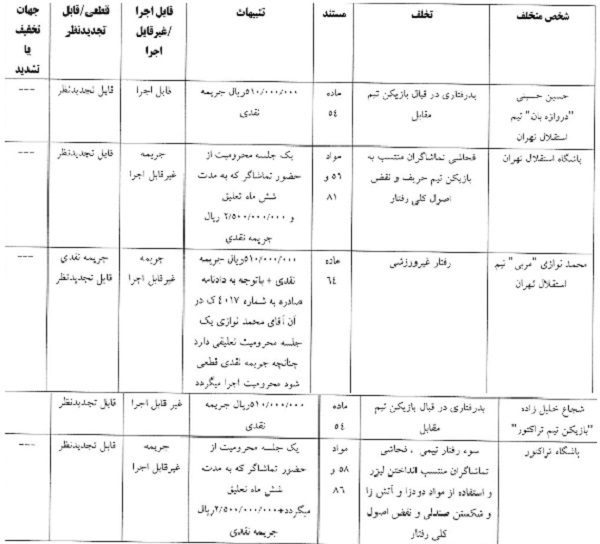 شخص متخلف	تخلف	مستند	تنبیهات	قابل اجرا /غیرقابل اجرا	قطعی/قابل تجدیدنظر	جهات تخفیف یا تشدید
حسین حسینی "دروازه بان" تیم استقلال تهران	بدرفتاری در قبال بازیکن تیم مقابل	ماده ۵۴	۵۱۰/۰۰۰/۰۰۰ریال جریمه نقدی	قابل اجرا	قابل تجدیدنظر	---
باشگاه استقلال تهران	فحاشی تماشاگران منتسب به بازیکن تیم حریف و نقض اصول کلی رفتار	مواد ۵۶ و ۸۱	یک جلسه محرومیت از حضور تماشاگر که به مدت شش ماه تعلیق و ۲/۵۰۰/۰۰۰/۰۰۰ ریال جریمه نقدی	جریمه غیرقابل اجرا	قابل تجدیدنظر	---
محمد نوازی "مربی" تیم استقلال تهران	رفتار غیرورزشی	ماده ۶۴	۵۱۰/۰۰۰/۰۰۰ریال جریمه نقدی + باتوجه به دادنامه صادره به شماره ۴۰۱۷ک در آن آقای محمد نوازی یک جلسه محرومیت تعلیقی دارد چنانچه جریمه نقدی قطعی شود محرومیت اجرا میگردد	جریمه غیرقابل اجرا	جریمه نقدی قابل تجدیدنظر	---
شجاع خلیل زاده "بازیکن تیم تراکتور"	بدرفتاری در قبال بازیکن تیم مقابل	ماده ۵۴	۵۱۰/۰۰۰/۰۰۰ریال جریمه نقدی	غیر قابل اجرا	قابل تجدیدنظر
باشگاه تراکتور	سوء رفتار تیمی ، فحاشی تماشاگران منتسب انداختن لیزر و استفاده از مواد دودزا و آتش زا و شکستن صندلی و نقض اصول کلی رفتار	مواد ۵۸ و ۸۶	یک جلسه محرومیت از حضور تماشاگر که به مدت شش ماه تعلیق میگردد+۲/۵۰۰/۰۰۰/۰۰۰ریال جریمه نقدی	جریمه غیرقابل اجرا	قابل تجدیدنظر	---